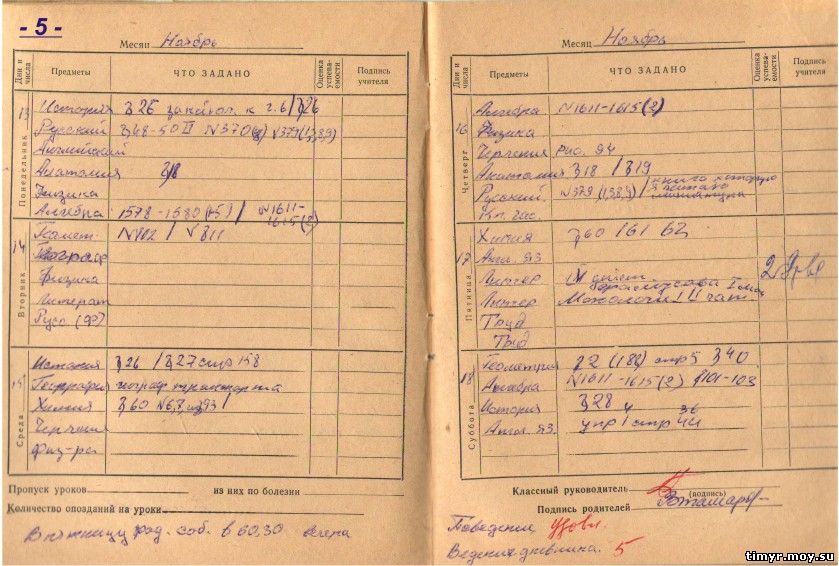 - 5 -
Месяц Ноябрь
Дни и числа
Предметы
ЧТО ЗАДАНО
Оценка успеваемости
Подпись учителя
Понедельник
13
История §26 г. 6 / §26
Русский §48-50 N370 N379(1,3,8,9)
Английский
Анатомия §18
Физика
Алгебра 1578-1580 / N1611-1615(2)
Вторник
14
Геомет N802 / N811
Географ
Физика
Литерат
Русс (Ф)
Среда
15
История §26 / §27 стр 158
География географ транспорта
Химия §60 N6,7, 93 /
Черчения
Физ-ра
Пропуск уроков
из них по болезни
Количество опозданий на уроки
В пятницу род. соб. в 60,30 вечена
Месяц Ноябрь
Дни и числа
Предметы
ЧТО ЗАДАНО
Оценка успеваемости
Подпись учителя
Четверг
16
Алгебра N1611-1615(2)
Физика
Черчения рис. 94
Анатомия §18 / §19
Русский N379 (1,3,8,9) / книга которую
Кл. час.
Пятница
17
Химия §60 / 61 62
Англ. яз
Литер
Литер Монологи
Труд
Труд
Суббота
18
Геометрия 22 (182) стр 5 §40
Алгебра N1611-1615(2) §101-103
История §28
Англ. яз. упр 1 стр 44
36
Классный руководитель
(подпись)
Подпись родителей
Поведение удовл.
Ведения дневника. 5
timyr.moy.su